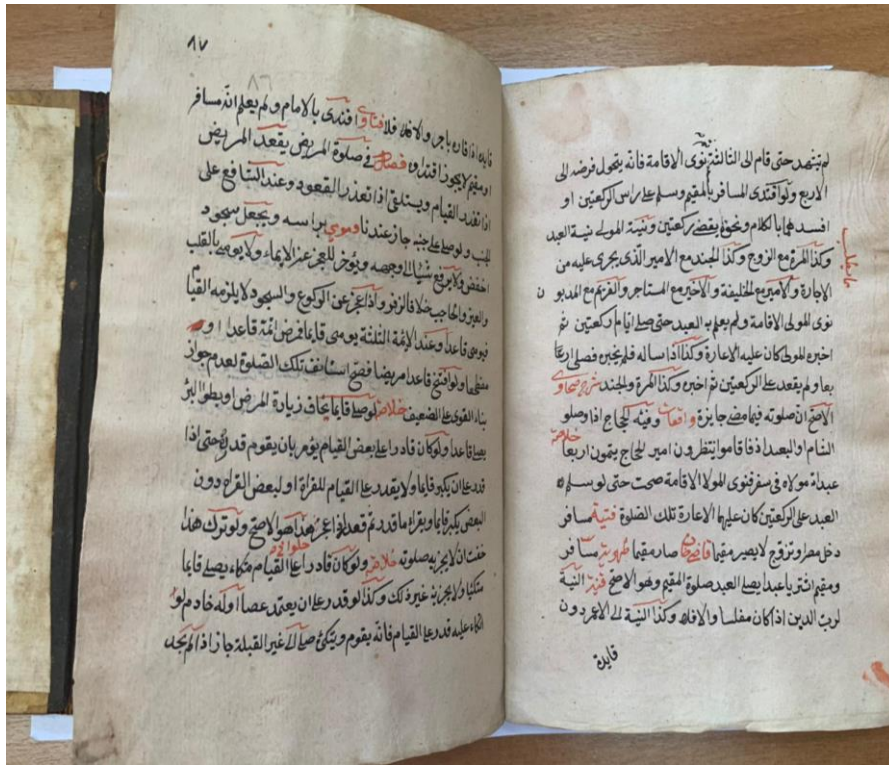 لم يتشهد حتى قام الى الثالثة نوى الاقامة فانه يتحول فرضه الى
الاربع ولو اقتدى المسافر بالمقيم وسلم على راس الركعتين او
افسدها بالكلام ونحوه يقضى ركعتين ونية المولى نية العبد
وكذا المرة مع الزوج وكذا الجند مع الامير الذى يجرى عليه من
الاجارة والامير مع الخليفة والاخير مع المستاجر والغريم مع المديون
نوى المولى الاقامة ولم يعلم به العبد حتى صلى ايام ركعتين ثم
اخبره المولى كان عليه الاعارة وكذا اذا ساله فلم يخبره فصلى اربعا
بعا ولم يقعد على الركعتين ثم اخبره وكذا المرة والجند شرح
الاصح ان صلوته فيما مضى جايزة واقعات وفيه الحجاج اذا وصلو
خلاصة
الشام والبعد اذ فاقاموا ينتظرون امير الحاج يتمون اربعا
عبد ام مولاه فى سفر فنوى المولا الاقامة صحت حتى لو سلم
العبد على الركعتين كان عليهما الاعارة تلك الصلوة قنية مسافر
دخل مصرا وتزوج لا يصير مقيما قاضيخان صار مقيما ظهيرية مسافر
ومقيم اشتريا عبدا يصلى العبد صلوة المقيم وهو الاصح النية
لرب الدين اذا كان مفلسا والافله وكذا النية الى الاعمى دون
قايده
٨٧
٨٦
قايده اذا قاده باجر والافلا فتاوى اقتدى بالامام ولم يعلم انه مسافر
او مقيم لا يجوز اقتداوه فصل فى صلوة المريض يقعد المريض
اذا تعذر القيام ويستلقى اذا تعذر القعود وعند الشافعى على
الجنب ولو صلى على جنبه جاز عندنا ويومى براسه ويجعل سجود
اخفض ولا يرفع شيا الى وجهه ويؤخر للعجز عن الايماء ولا يومى بالقلب
والعين والحاجب خلافا لزفر واذا عجز عن الركوع والسجود لا يلزمه القيام
فيومى قاعدا وعند الائمة الثلثة يومى قايما فرض ائمة قاعدا او
مضطجعا ولو افتتح قاعدا مريضا فصح استانف تلك الصلوة لعدم جواز
بناء القوى على الضعيف خلاصة لو صلى قايما يخاف زيادة المرض او بطوء البرء
يصلى قاعدا ولو كان قادرا على بعض القيام يؤمر بان يقوم قدره حتى اذا
قدر على ان يكبر قايما ولا يقدر على القيام للقراة او لبعض القراة دون
البعض يكبر قايما ويقراء ما قدر ثم قعد اذا عجز هذا هو الاصح ولو ترك هذا
حلوانى
خفت ان لا يجزيه صلوته خلاصة ولو كان قادرا على القيام متكاء يصلى قايما
متكئا ولا يجزيه غير ذلك وكذا لو قدر على ان يعتمد عصا او له خادم لو
اتكاء عليه قدر على القيام فانه يقوم ويتكئ صلى الى غير القبلة جاز اذا لم يجد